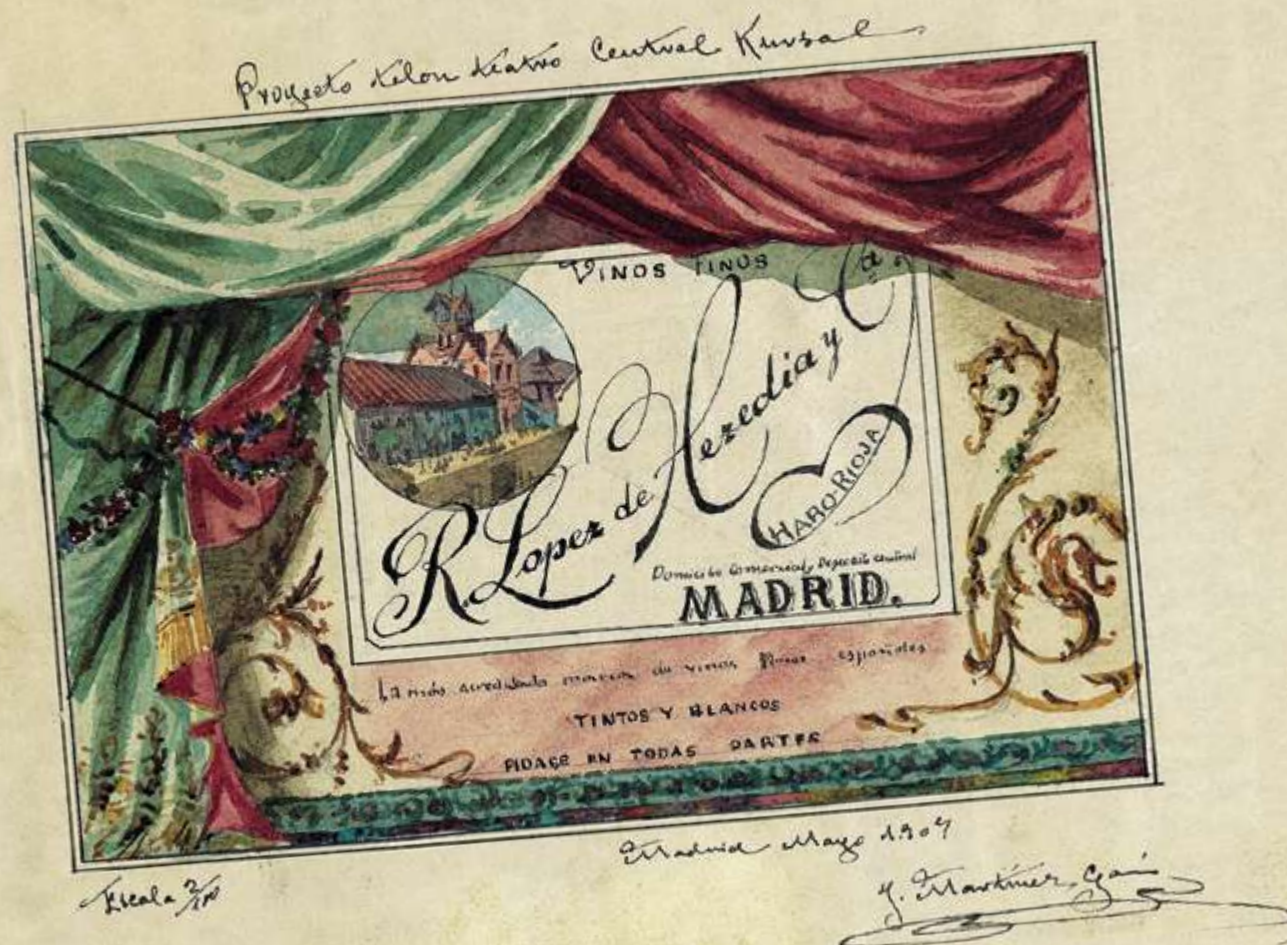 Proyecto telon teatro Central Kursal
VINOS FINOS
R. Lopez de Heredia y Cª.
HARO-RIOJA
Domicilio Comercial y Deposito central
MADRID.
La más acreditada marca de vinos finos españoles
TINTOS Y BLANCOS
PIDASE EN TODAS PARTES
Madrid Mayo 1907
Escala
Martinez